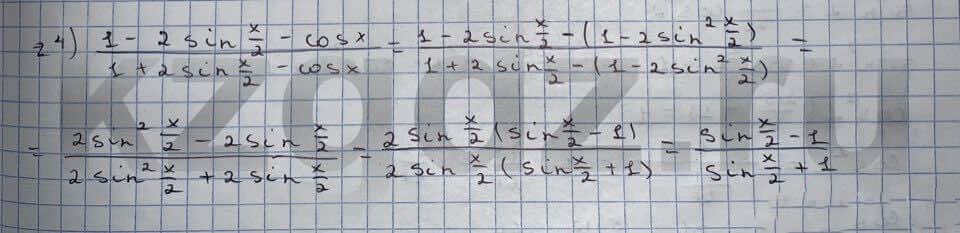 24) (1 - 2 sin x/2 - cos x)/(1 + 2 sin x/2 - cos x) = (1 - 2 sin x/2 - (1 - 2 sin² x/2))/(1 + 2 sin x/2 - (1 - 2 sin² x/2)) =
= (2 sin² x/2 - 2 sin x/2)/(2 sin² x/2 + 2 sin x/2) = (2 sin x/2 (sin x/2 - 1))/(2 sin x/2 (sin x/2 + 1)) = (sin x/2 - 1)/(sin x/2 + 1)
kzgdz.ru